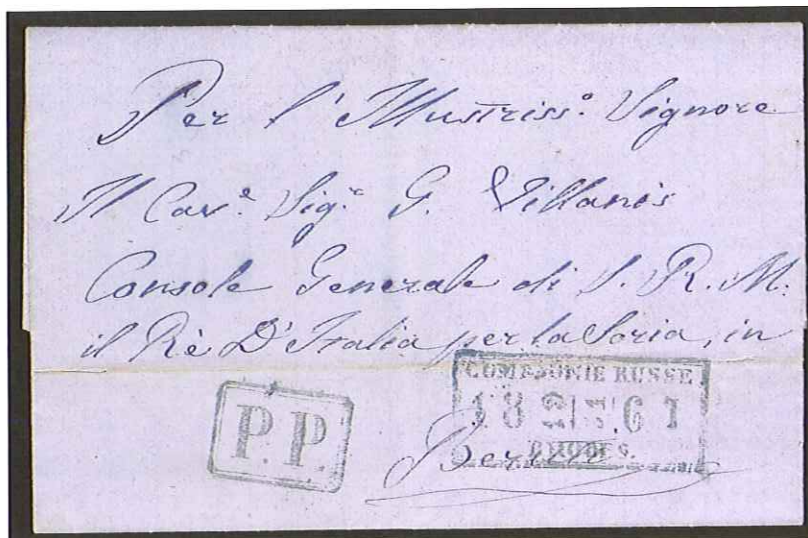 Per l'Illustriss.º Signore
Il Cav.e Sig.r G. Villanis
Console Generale di S. R. M.
il Rè D'Italia per la Soria, in
COMPAGNIE RUSSE
18 6 7
RHODES.
P.P.